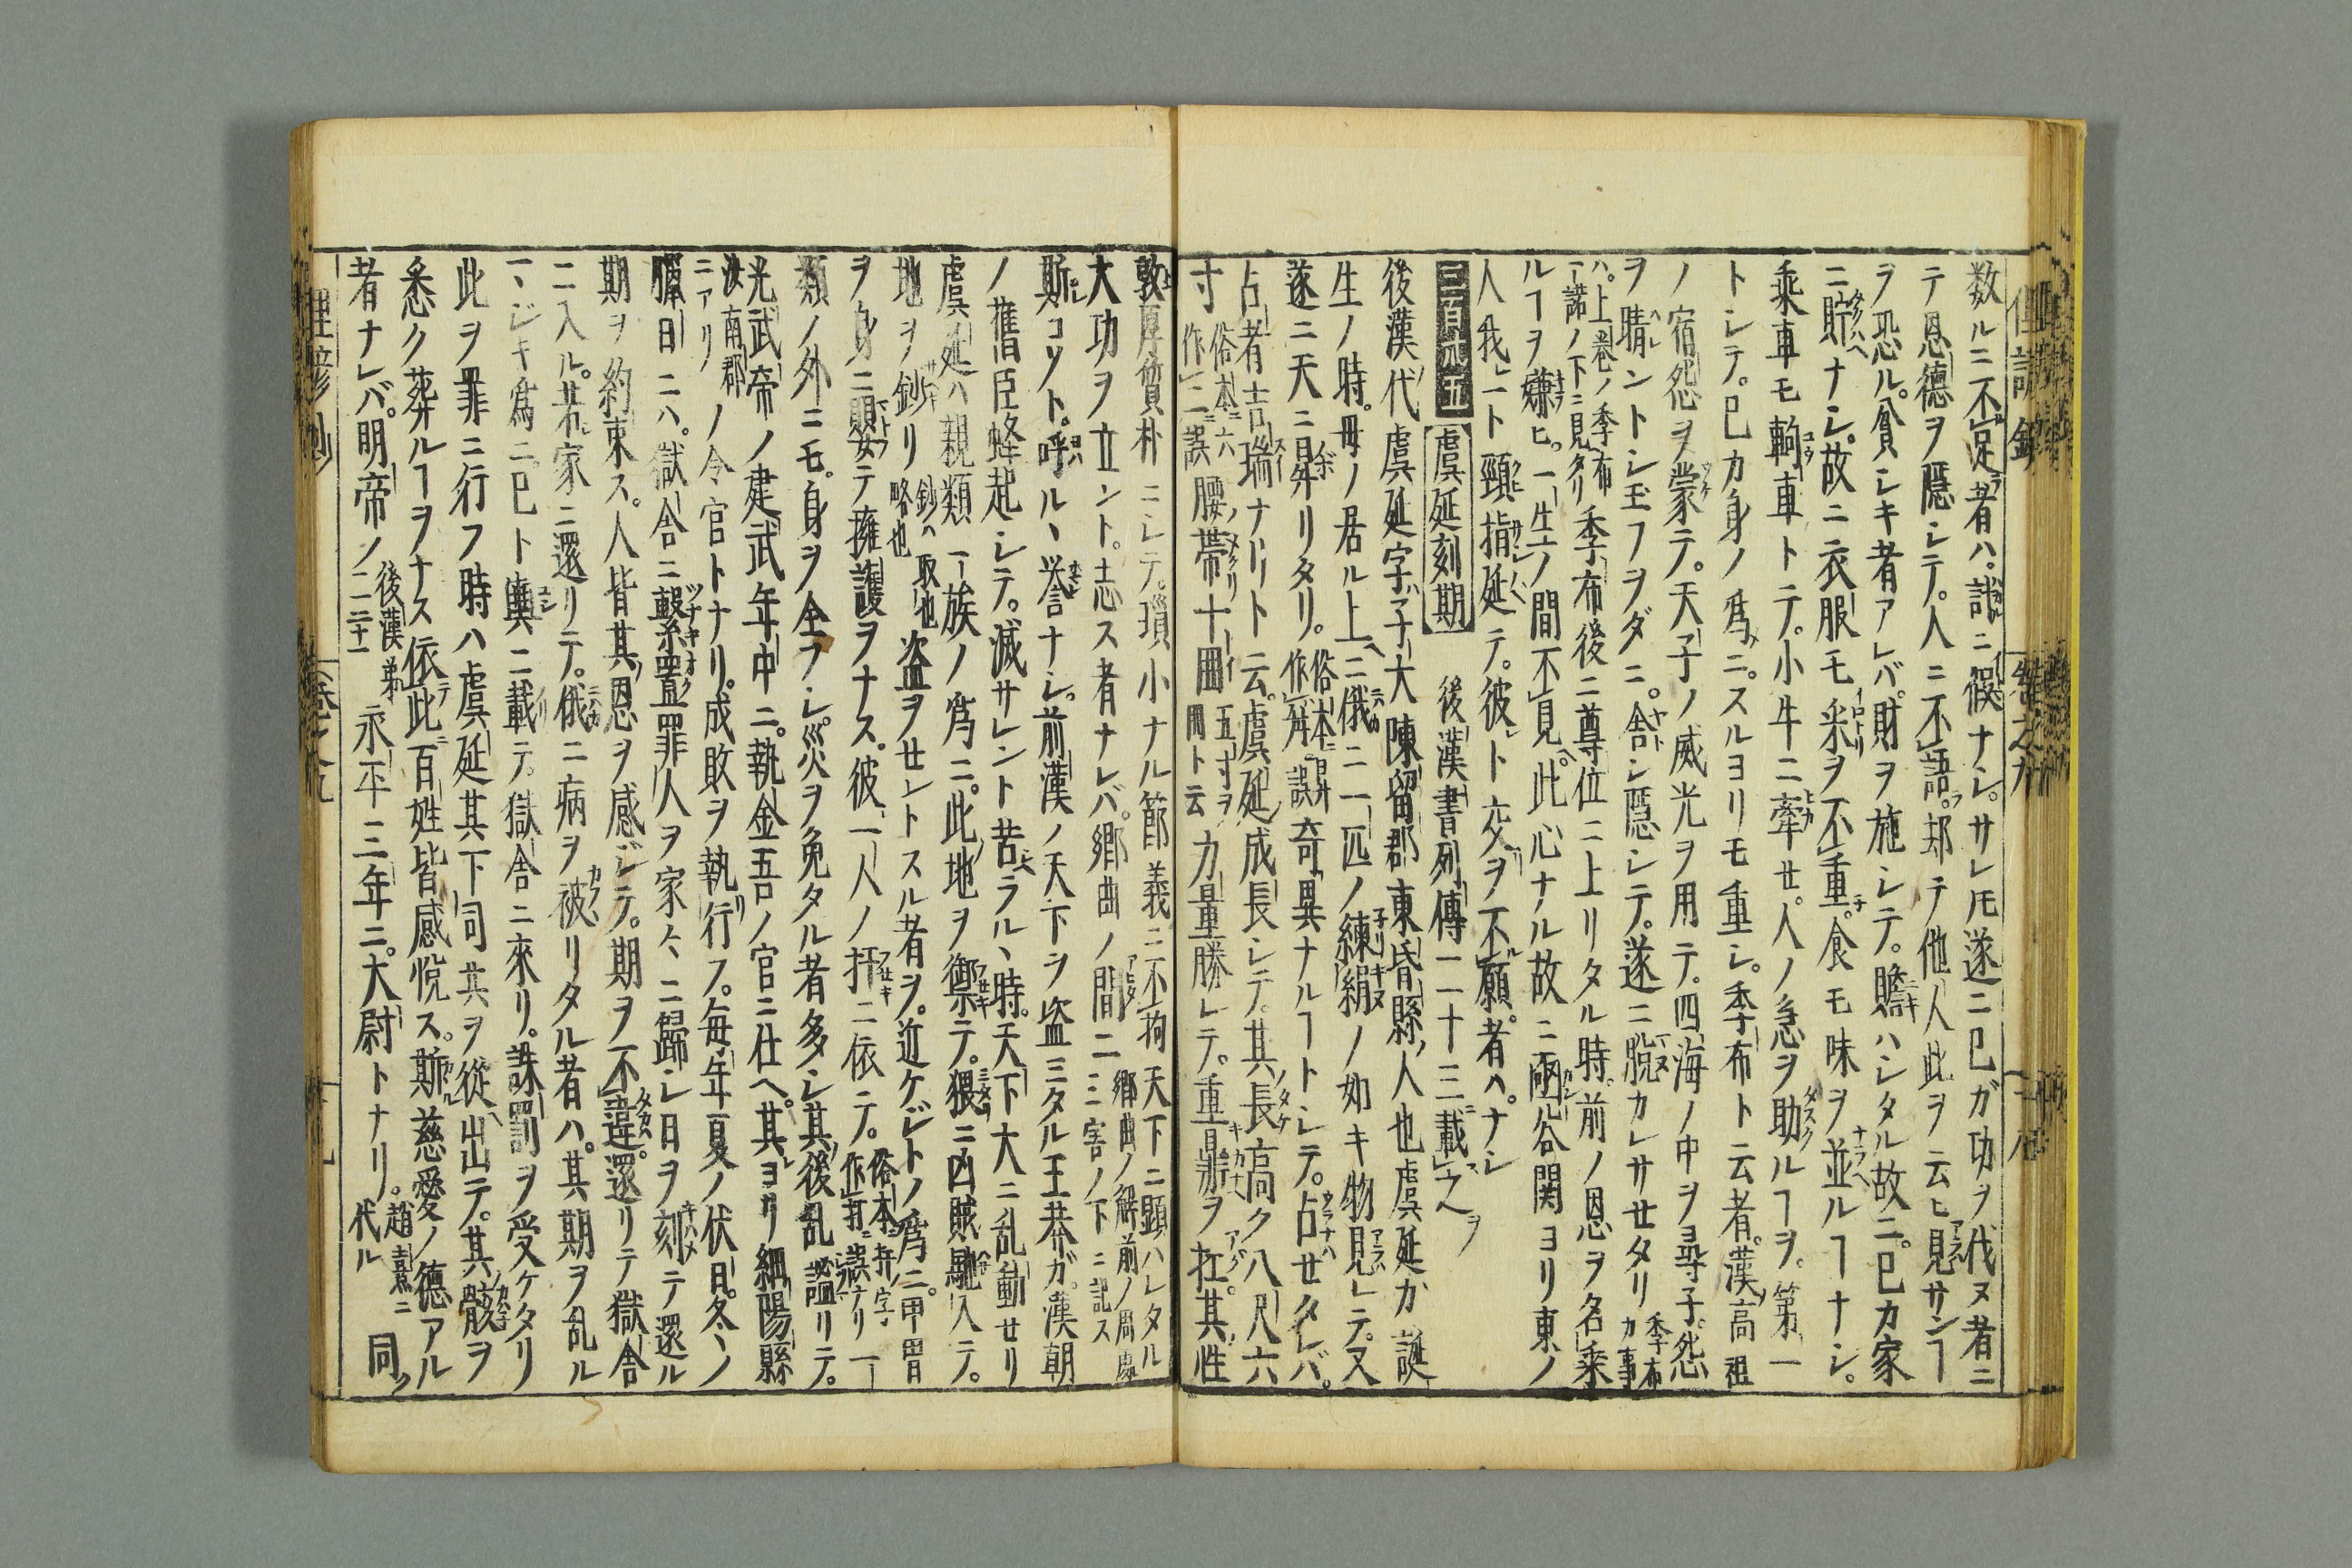 数ルニ不足者ハ。誰ニ候ナシ。サレ𪜈遂ニ已ガ功ヲ代ヌ者ニ
テ恩徳ヲ隱シテ。人ニ不語。却テ他人此ヲ云ヒ見サンヿ
ヲ恐ル。貧シキ者アレバ。財ヲ施シテ。贍ハシタル故ニ。已カ家
ニ貯ナシ。故ニ衣服モ采ヲ不重。食モ味ヲ並ルヿナシ。
乘車モ軥車トテ。小牛ニ牽せ。人ノ急ヲ助ルヿヲ。第一
トシテ。已カ身ノ爲ニ。スルヨリモ重シ。季布ト云者。漢高祖
ノ宿怨ヲ蒙テ。天子ノ威光ヲ用テ。四海ノ中ヲヨ尋子。怨
ヲ晴ントシ玉フヲダニ。舎シ隱シテ。遂ニ脱カレサせタリ 季布カ事
ハ。上卷ノ季布一諾ノ下ニ見タリ 季布後ニ尊位ニ上リタル時。前ノ恩ヲ名乘
ルヿヲ嫌ヒ。一生ノ間不見。此心ナル故ニ凾谷関ヨリ東ノ
人我一ト頸指延テ。彼ト交ヲ不願者ハ。ナシ
二百九五 虞延刻期 後漢書列傳二十三ニ載之ヲ
後漢代虞延字子大陳留郡東昏縣ノ人也虞延カ誕
生ノ時。母ノ居ル上ニ俄ニ一匹ノ練絹ノ如キ物見レテ。又
遂ニ天ニ昇リタリ。俗本ニ昇作舜誤 奇異ナルヿトシテ。占せタレバ。
占者吉瑞ナリト云。虞延成長シテ。其長高ク八尺六
寸 俗本ニ六作二誤 腰帶十囲 五寸ヲ囲ト云 力量勝レテ。重鼎ヲ扛。其性
敦厚質朴ニシテ。瑣小ナル節義ニ不拘天下ニ顯ハレタル
大功ヲ立ント。志ス者ナレバ。郷曲ノ間ニ 郷曲ノ解前ノ周處三害ノ下ニ記ス
斯コソト。呼ル丶誉ナシ。前漢ノ天下ヲ盗ミタル王莽ガ。漢朝
ノ舊臣蜂起シテ。滅サレント苦ラル丶時。天下大ニ乱動せリ
虞延ハ親類一族ノ爲ニ。此地ヲ禦テ。猥ニ凶賊馳入テ。
地ヲ鈔リ 鈔ハ取也略也 盗ヲせントスル者ヲ。近ケジトノ爲ニ。甲冑
ヲ身ニ顯女テ擁護ヲナス。彼一人ノ扞ニ依テ。俗本ニ弁ノ字作誤ナリ 一
類ノ外ニモ。身ヲ全フシ。災ヲ免タル者多シ其後乱謐リテ。
光武帝ノ建武年中ニ。執金吾ノ官ニ仕ヘ。其ヨリ細陽縣
汝南郡ニアリ ノ令官トナリ。成敗ヲ執行フ。毎年夏ノ伏日。冬ノ
臘日ニハ。獄舎ニ繫置罪人ヲ家々ニ歸シ日ヲ刻テ還ル
期ヲ約束ス。人皆其恩ヲ感ジテ。期ヲ不違。還リテ獄舎
ニ入ル。若家ニ還リテ。俄ニ病ヲ被リタル者ハ。其期ヲ乱ル
一丶ジキ爲ニ。已ト輿ニ載テ。獄舎ニ來リ。誅罰ヲ受ケタリ
此ヲ罪ニ行フ時ハ虞延其下司共ヲ從出テ。其骸ヲ
悉ク葬ルヿヲナス依此百姓皆感悅ス。斯慈愛ノ德アル
者ナレバ。明帝ノ 後漢第二 永平三年ニ。大尉トナリ。趙熹ニ代ル 同ク